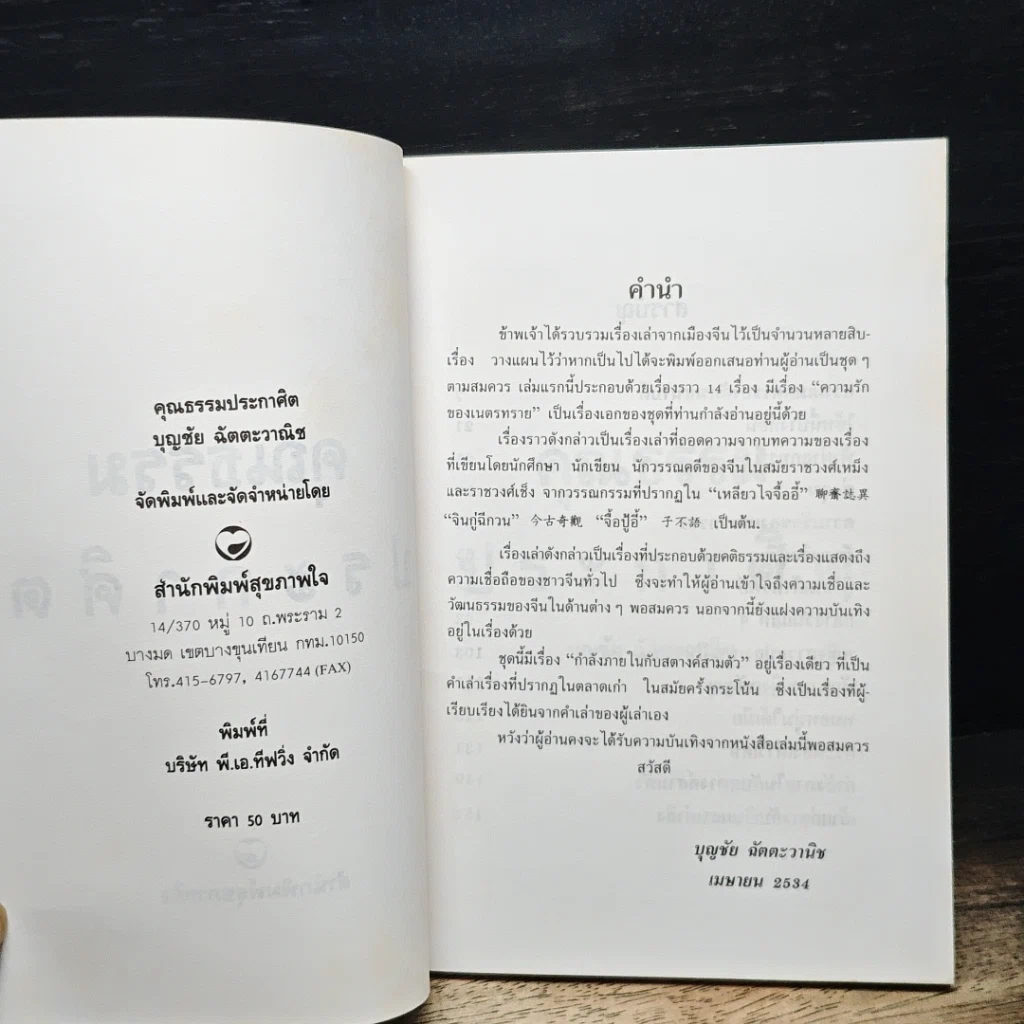 คุณธรรมประกาศิต
บุญชัย ฉัตตะวาณิช
จัดพิมพ์และจัดจำหน่ายโดย
สำนักพิมพ์สุขภาพใจ
14/370 หมู่ 10 ถ.พระราม 2
บางมด เขตบางขุนเทียน กทม.10150
โทร.415-6797, 4167744 (FAX)
พิมพ์ที่
บริษัท พี.เอ.ทีฟวิ่ง จำกัด
ราคา 50 บาท
คำนำ
ข้าพเจ้าได้รวบรวมเรื่องเล่าจากเมืองจีนไว้เป็นจำนวนหลายสิบ-
เรื่อง วางแผนไว้ว่าหากเป็นไปได้จะพิมพ์ออกเสนอท่านผู้อ่านเป็นชุด ๆ
ตามสมควร เล่มแรกนี้ประกอบด้วยเรื่องราว 14 เรื่อง มีเรื่อง “ความรัก
ของเนตรทราย” เป็นเรื่องเอกของชุดที่ท่านกำลังอ่านอยู่นี้ด้วย
เรื่องราวดังกล่าวเป็นเรื่องเล่าที่ถอดความจากบทความของเรื่อง
ที่เขียนโดยนักศึกษา นักเขียน นักวรรณคดีของจีนในสมัยราชวงศ์เหม็ง
และราชวงศ์เช็ง จากวรรณกรรมที่ปรากฏใน “เหลียวไจจื้ออี้” 聊齋誌異
“จินกู่ฉีกวน” 今古奇觀 “จื้อปู้อี้” 子不語 เป็นต้น.
เรื่องเล่าดังกล่าวเป็นเรื่องที่ประกอบด้วยคติธรรมและเรื่องแสดงถึง
ความเชื่อถือของชาวจีนทั่วไป ซึ่งจะทำให้ผู้อ่านเข้าใจถึงความเชื่อและ
วัฒนธรรมของจีนในด้านต่าง ๆ พอสมควร นอกจากนี้ยังแฝงความบันเทิง
อยู่ในเรื่องด้วย
ชุดนี้มีเรื่อง “กำลังภายในกับสตางค์สามตัว” อยู่เรื่องเดียว ที่เป็น
คำเล่าเรื่องที่ปรากฏในตลาดเก่า ในสมัยครั้งกระโน้น ซึ่งเป็นเรื่องที่ผู้-
เรียบเรียงได้ยินจากคำเล่าของผู้เล่าเอง
หวังว่าผู้อ่านคงจะได้รับความบันเทิงจากหนังสือเล่มนี้พอสมควร
สวัสดี
บุญชัย ฉัตตะวานิช
เมษายน 2534